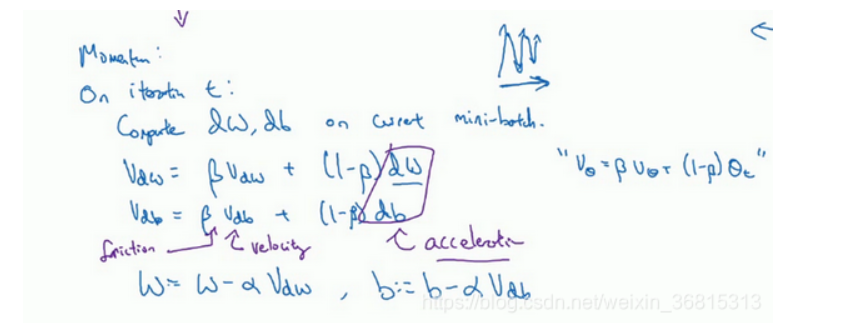 Momentum:
On iteration t:
Compute dW, db on current mini-batch.
Vdw = β Vdw + (1-β) dW
"Vθ = β Vθ + (1-β) θt"
Vdb = β Vdb + (1-β) db
friction velocity acceleration
W = W - α Vdw , b := b - α Vdb
https://blog.csdn.net/weixin_36815313